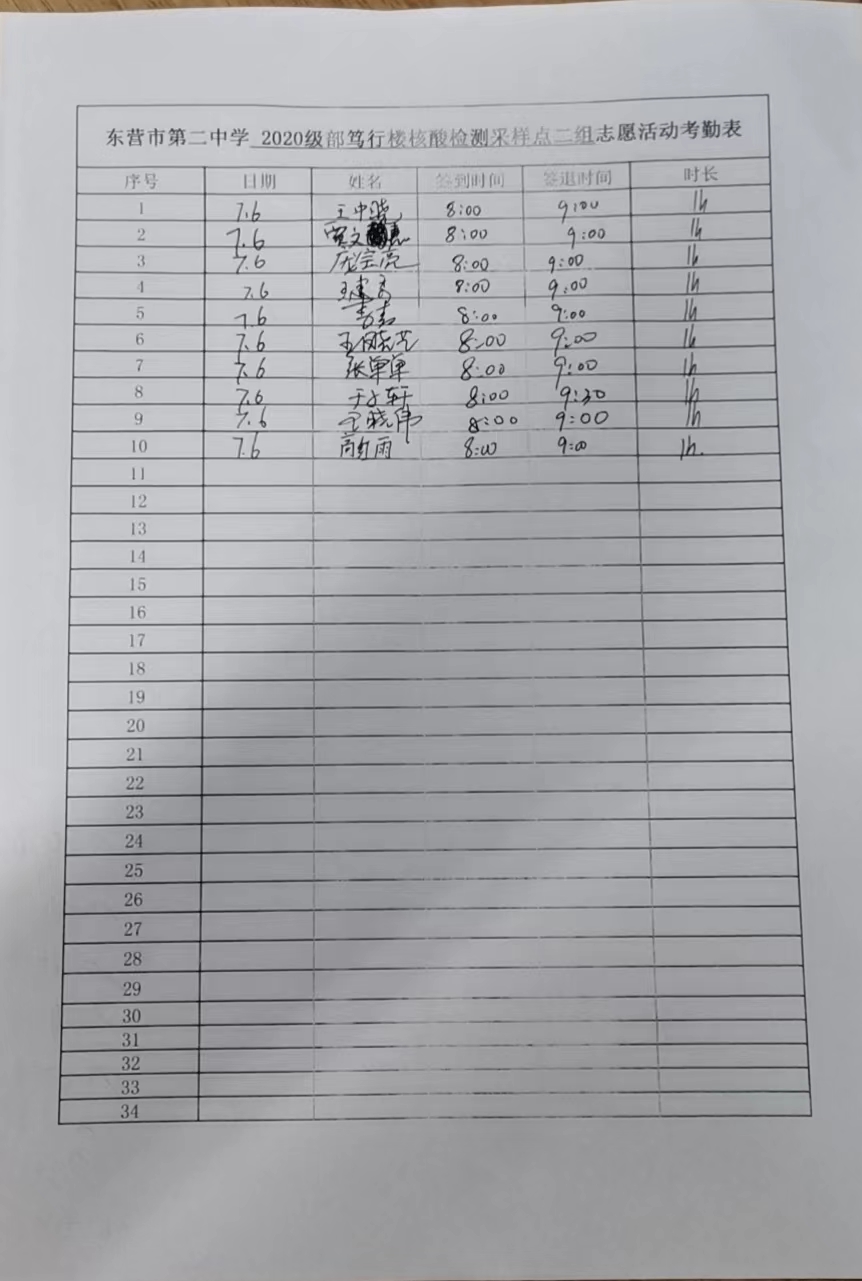 东营市第二中学 2020级部笃行楼核酸检测采样点二组志愿活动考勤表
序号 日期 姓名 签到时间 签退时间 时长
1 7.6 王中晓 8:00 9:00 1h
2 7.6 8:00 9:00 1h
3 7.6 8:00 9:00 1h
4 7.6 8:00 9:00 1h
5 7.6 8:00 9:00 1h
6 7.6 8:00 9:00 1h
7 7.6 张单单 8:00 9:00 1h
8 7.6 于子轩 8:00 9:30 1h
9 7.6 王晓伟 8:00 9:00 1h
10 7.6 8:00 9:00 1h.
11
12
13
14
15
16
17
18
19
20
21
22
23
24
25
26
27
28
29
30
31
32
33
34